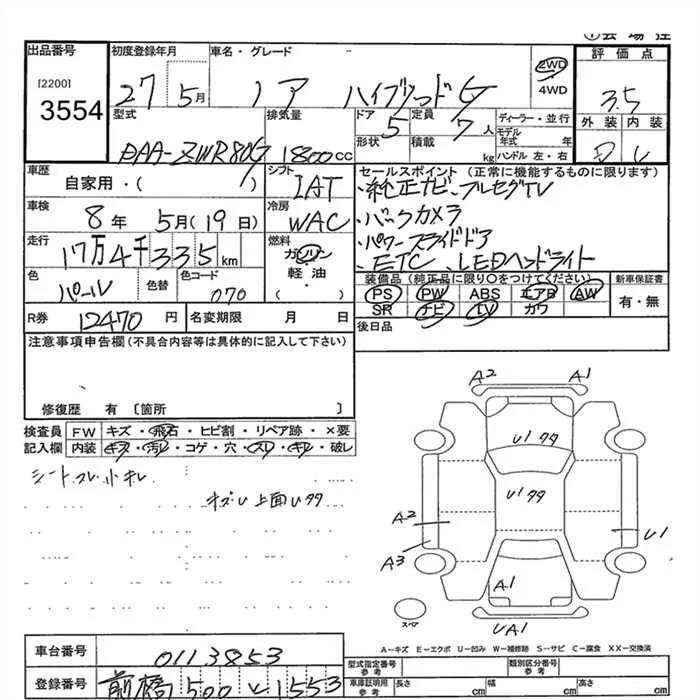 出品番号 初度登録年月 車名・グレード 評価点
[2200] 3554 27 5月 ノア ハイブリッドG 2WD 4WD 3.5
型式 排気量 ドア 5 定員 7人 ディーラー・並行 外装 内装
DAA-ZWR80G 1800cc 形状 積載 kg モデル年式 年 ハンドル 左・右
車歴 シフト セールスポイント (正常に機能するものに限ります)
自家用・( ) IAT ・純正ナビ、フルセグTV
車検 8年 5月(19日) 冷房 WAC ・バックカメラ
走行 17万4千335km 燃料 ガソリン ・パワースライドドア
軽・油 ・ETC、LEDヘッドライト
色 パール 色替 色コード 070 ( ) 装備品 (純正品に限り○をつけてください) 新車保証書
PS PW ABS エアB AW 有・無
R券 12470円 名変期限 月 日 SR ナビ TV カワ
後日品
注意事項申告欄(不具合内容等は具体的に記入して下さい)
修復歴 有 〔箇所
検査員 FW キズ・飛石・ヒビ割・リペア跡・×要
記入欄 内装 キズ・汚レ・コゲ・穴・スレ・キレ・破レ
シートスレ小キレ
上面Uタタ
A2 A1
U1タタ
U1タタ
A2 U1
A3
A1
スペア UA1
A-キズ E-エクボ U-凹み W-補修跡 S-サビ C-腐食 XX-交換済
車台番号 0113853
型式指定番号 参考 類別区分番号 参考
登録番号 前橋 500 1553
車庫証明用 参考 長さ cm 幅 cm 高さ cm